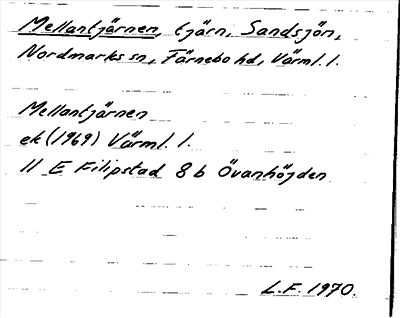 Mellantjärnen, tjärn, Sandsjön,
Nordmarks sn, Färnebo hd, Värml. l.
Mellantjärnen
ek (1969) Värml. l.
11 E Filipstad 8 b Övanhöjden
L.F. 1970.